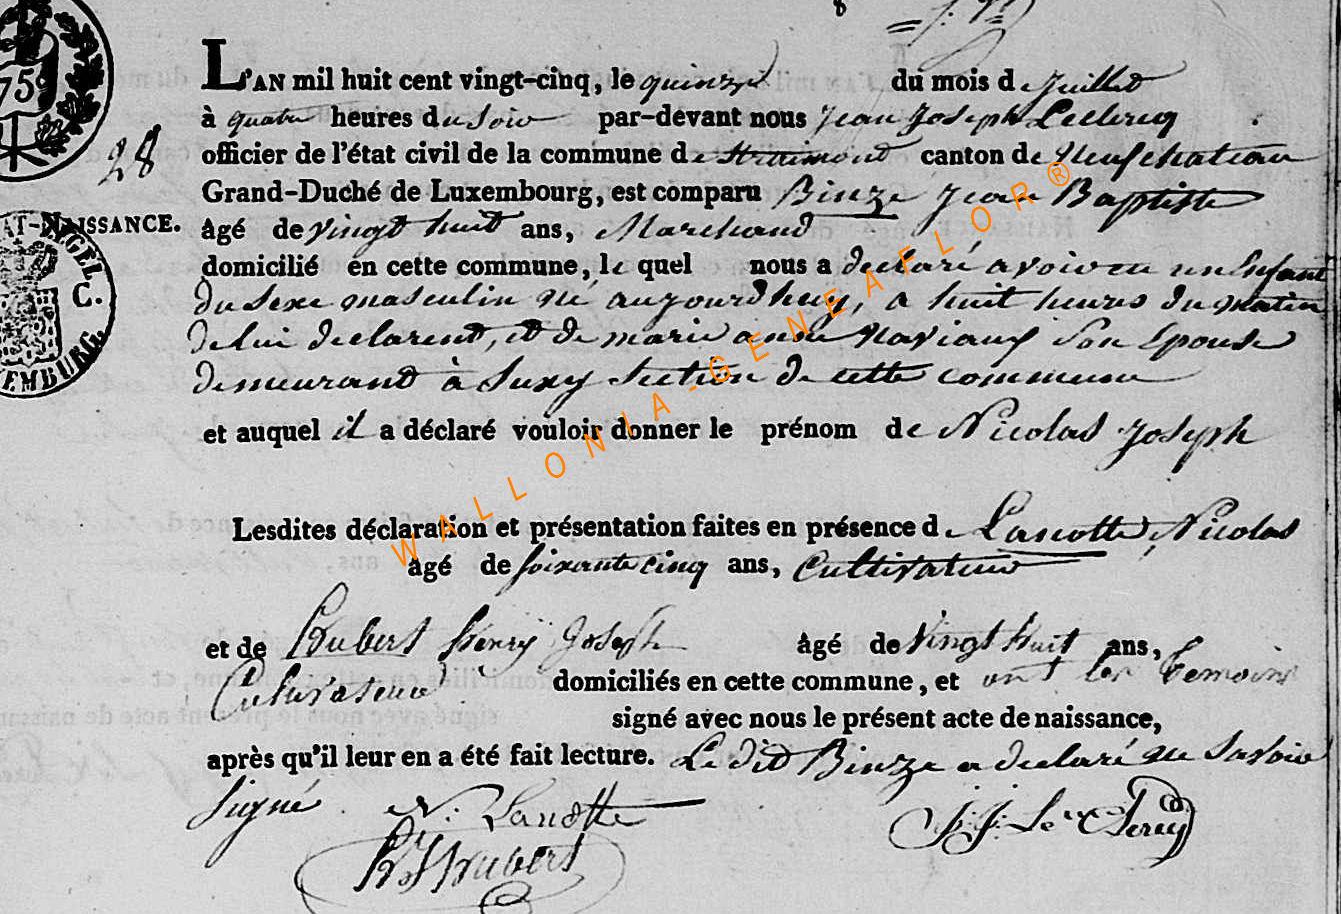 8
759
L'AN mil huit cent vingt-cinq, le quinze du mois de juillet
à quatre heures du soir par-devant nous Jean Joseph Leclercq
28
officier de l'état civil de la commune de Straimont canton de Neufchateau
Grand-Duché de Luxembourg, est comparu Binze Jean Baptiste
NAISSANCE.
âgé de vingt huit ans, Marchand
domicilié en cette commune, le quel nous a declaré avoir eu un Enfant
C.
du sexe masculin né aujourdhuy, a huit heures du matin
de lui declarent, et de marie anne Naviaux son Epouse
EMBURG.
demeurant à Suxy section de cette commune
et auquel il a déclaré vouloir donner le prénom de Nicolas Joseph
WALLONIA-GENEAFLOR®
Lesdites déclaration et présentation faites en présence de Lanotte, Nicolas
âgé de soixante cinq ans, Cultivateur
et de Hubert henry Joseph âgé de vingt huit ans,
Cultivateur domiciliés en cette commune, et ont les temoins
signé avec nous le présent acte de naissance,
après qu'il leur en a été fait lecture. Le dit Binze a declaré ne savoir
signé N. Lanotte J. J. Leclercq
H J Hubert